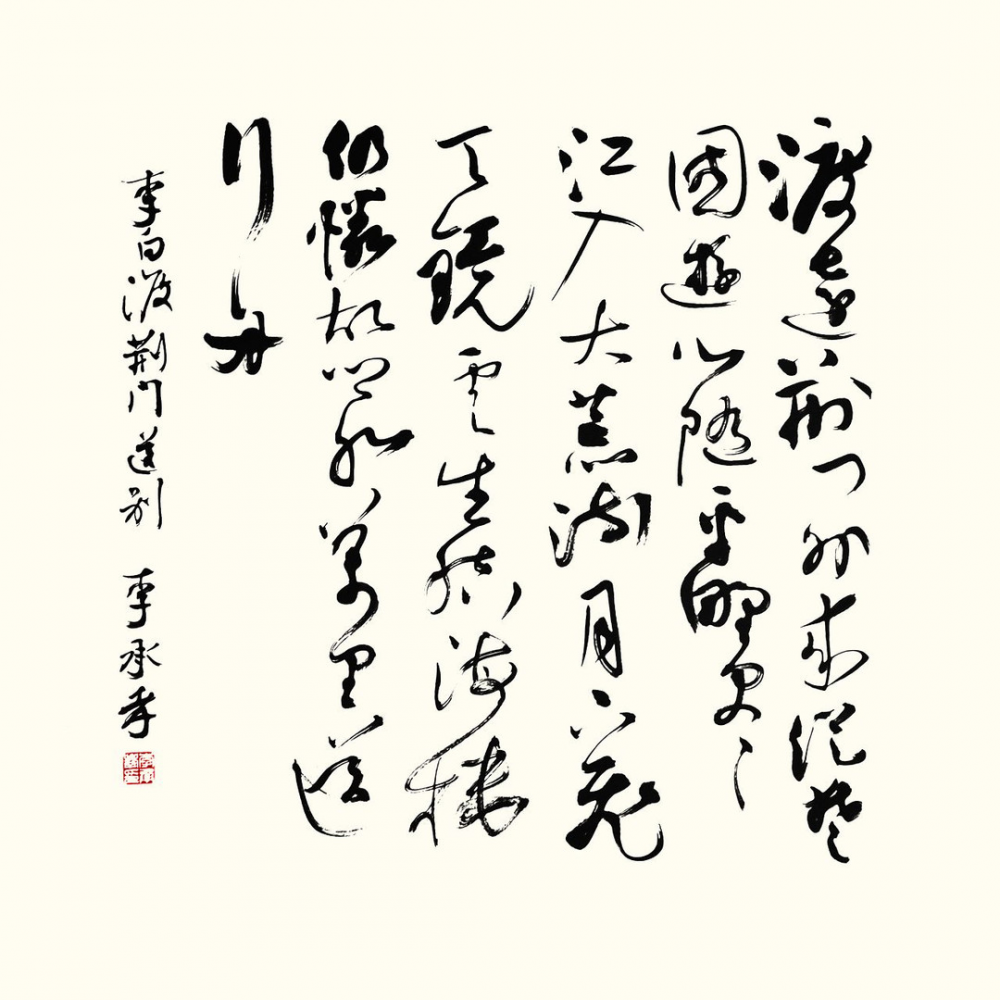 渡遠荆门外来從楚
国遊山随平野尽
江入大荒流月下飛
天鏡雲生结海楼
仍憐故乡水萬里送
行舟
李白渡荆门送别 李承孝